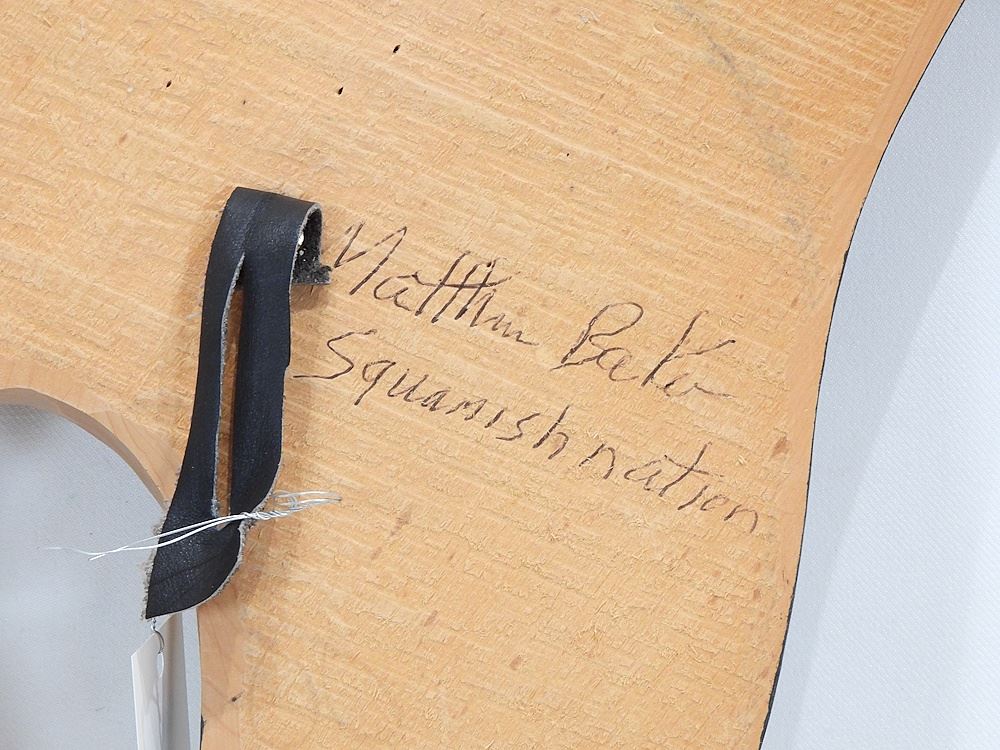 Matthew Baker
Squamish nation